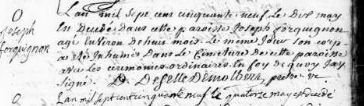 Joseph
forquignon
L'an mil sept cent cinquante neuf le dix may
est decedé dans cette paroisse Joseph forquignon
agé environ de huit mois le même jour son corps
a été inhumé dans le cimetiere de cette paroisse
avec les ceremonies ordinaires en foy de quoy j'ay
signé
L'an mil sept cent cinquante neuf le quatorze may est decedé